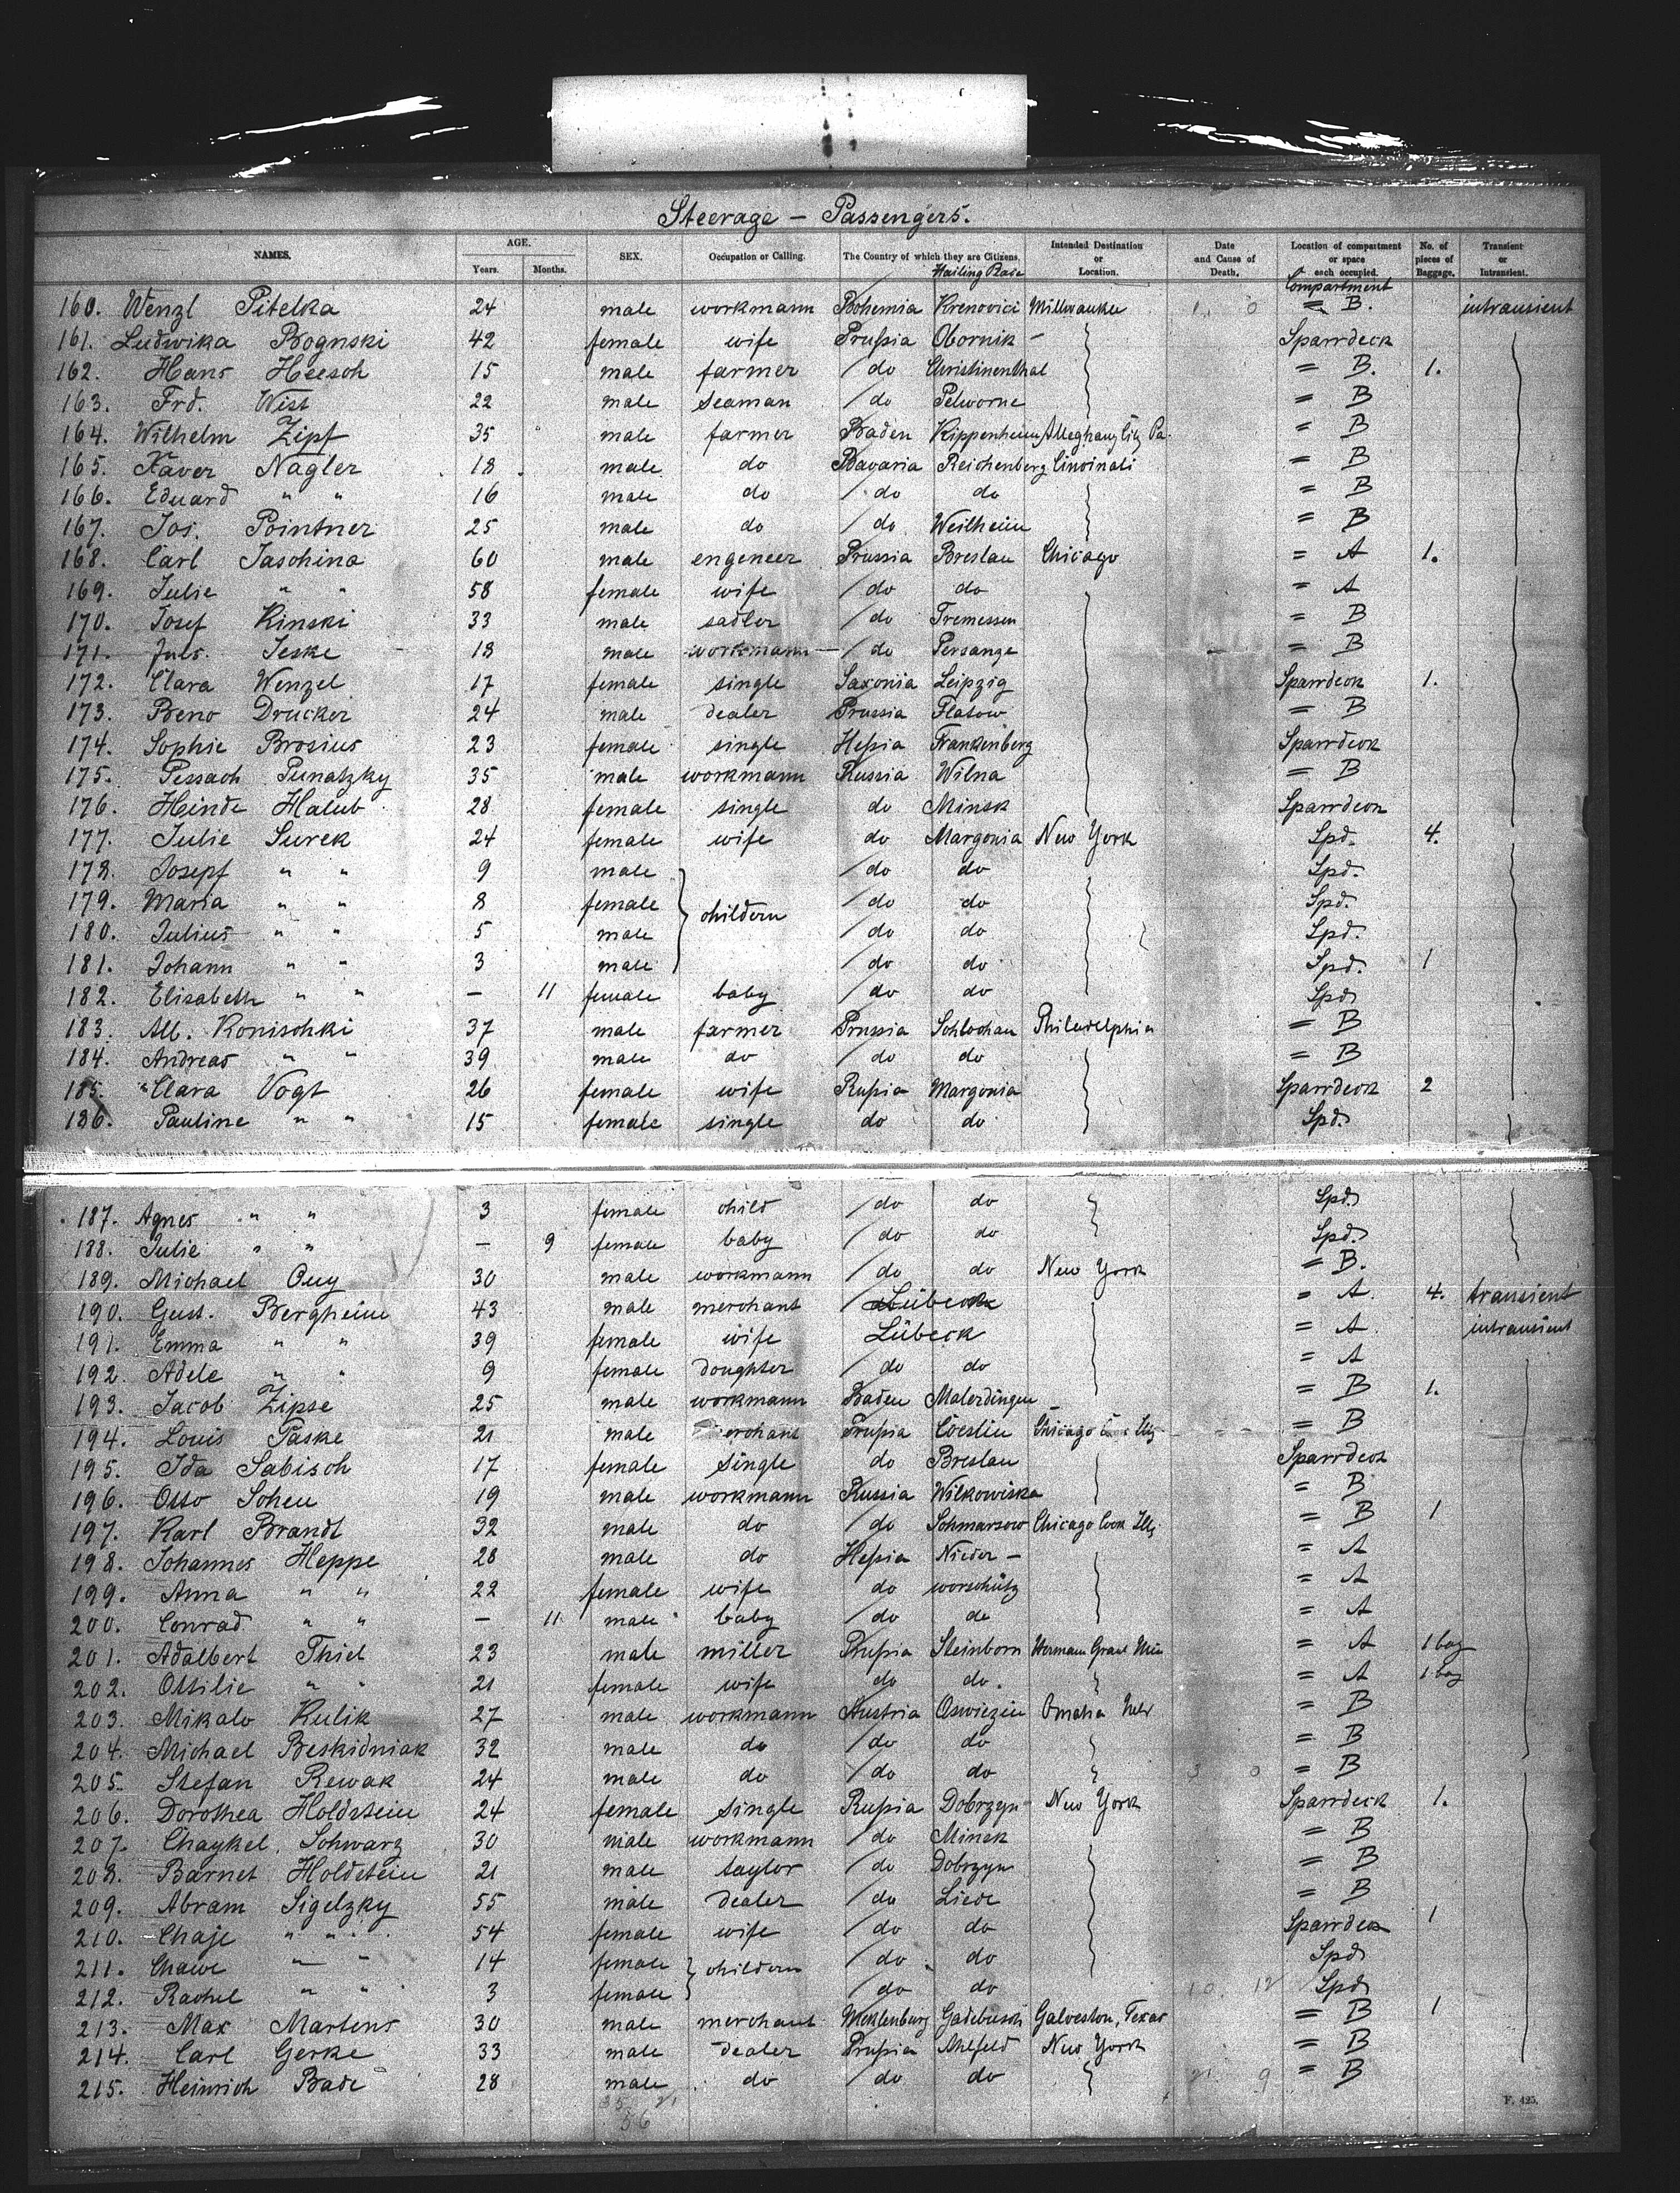 Steerage – Passengers.
NAMES. AGE. Years. Months. SEX. Occupation or Calling. The Country of which they are Citizens. Hailing Place Intended Destination or Location. Date and Cause of Death. Location of compartment or space each occupied. No. of pieces of Baggage. Transient or Intransient.
Compartment
160. Wenzl Pitelka 24 male workmann Bohemia Krenovici Millwaukee = B. intransient
161. Ludwika Rognski 42 female wife Prussia Obornik – Sparrdeck
162. Hans Heesch 15 male farmer do Christinenthal = B. 1.
163. Frd. Wist 22 male seaman do Pelworne = B
164. Wilhelm Zipf 35 male farmer Baden Kippenheim Alleghany City Pa. = B
165. Xaver Nagler 18 male do Bavaria Reichenberg Cincinati = B
166. Eduard " " 16 male do do do = B
167. Jos. Pointner 25 male do do Weilheim = B
168. Carl Jaschina 60 male engeneer Prussia Breslau Chicago = A 1.
169. Julie " " 58 female wife do do = A
170. Josef Kinski 33 male sadler do Tremessen = B
171. Juls. Jeske 18 male workmann do Persange = B
172. Clara Wenzel 17 female single Saxonia Leipzig Sparrdeck 1.
173. Beno Drucker 24 male dealer Prussia Flatow = B
174. Sophie Brosius 23 female single Hessia Frankenberg Sparrdeck
175. Pessach Punatzky 35 male workmann Russia Wilna = B
176. Heinde Halub 28 female single do Minsk Sparrdeck
177. Julie Surek 24 female wife do Margonia New York Spd. 4.
178. Josepf " " 9 male do do Spd.
179. Maria " " 8 female childern do do Spd.
180. Julius " " 5 male do do Spd.
181. Johann " " 3 male do do Spd. 1
182. Elisabeth " " – 11 female baby do do Spd
183. Alb. Konischki 37 male farmer Prussia Schlochau Philadelphia = B
184. Andreas " " 39 male do do do = B
185. Clara Vogt 26 female wife Russia Margonia Sparrdeck 2
186. Pauline " " 15 female single do do Spd.
187. Agnes " " 3 female child do do Spd.
188. Julie " " – 9 female baby do do Spd.
189. Michael Ouy 30 male workmann do do New York = B.
190. Gust. Bergheim 43 male merchant Lübeck = A. 4. transient
191. Emma " " 39 female wife Lübeck = A. intransient
192. Adele " " 9 female doughter do do = A
193. Jacob Zipse 25 male workmann Baden Malerdingen = B 1.
194. Louis Paske 21 male merchant Prussia Coeslin Chicago = B
195. Ida Sabisch 17 female single do Breslau Sparrdeck
196. Otto Scheu 19 male workmann Russia Wilkowiska = B
197. Karl Brandt 32 male do do Schmarsow Chicago Cook Ills. = B 1
198. Johannes Heppe 28 male do Hessia Nieder – = A
199. Anna " " 22 female wife do worschütz = A
200. Conrad " " – 11 male baby do do = A
201. Adalbert Thiel 23 male miller Prussia Steinborn = A 1 bag
202. Ottilie " " 21 female wife do do. = A 1 bag
203. Mikalo Kulik 27 male workmann Austria Oswiezin Omaha Nebr = B
204. Michael Beskidniak 32 male do do do = B
205. Stefan Rewak 24 male do do do = B
206. Dorothea Holdstein 24 female single Russia Dobrzyn New York Sparrdeck 1.
207. Chaykel Schwarz 30 male workmann do Minsk = B
208. Barnet Holdstein 21 male taylor do Dobrzyn = B
209. Abram Sigelzky 55 male dealer do Liede = B
210. Chaje " " 54 female wife do do Sparrdeck 1
211. Chawe " 14 female childern do do Spd
212. Rachel " " 3 female do do Spd
213. Max Martens 30 male merchant Mecklenburg Gadebusch Galveston, Texas = B 1
214. Carl Gerke 33 male dealer Prussia Ahlfeld New York = B
215. Heinrich Bade 28 male do do do = B
F. 425.